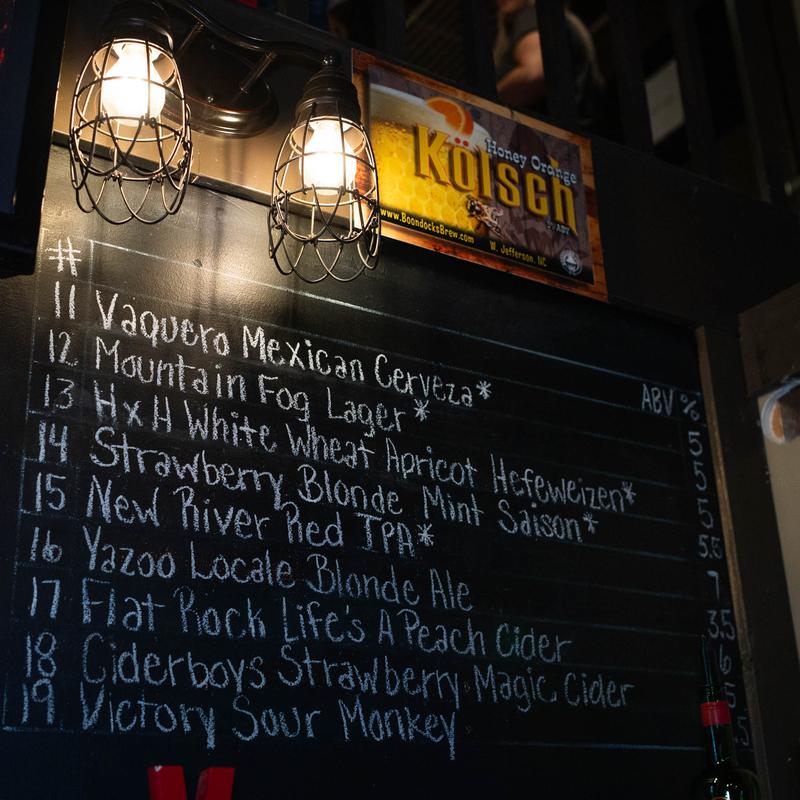 Honey Orange
Kölsch
www.BoondocksBrew.com
W. Jefferson, NC
#
ABV %
11 Vaquero Mexican Cerveza* 5
12 Mountain Fog Lager* 5
13 HxH White Wheat Apricot Hefeweizen* 5
14 Strawberry Blonde Mint Saison* 5.5
15 New River Red IPA* 7
16 Yazoo Locale Blonde Ale 3.5
17 Flat Rock Life's A Peach Cider 6
18 Ciderboys Strawberry Magic Cider 5
19 Victory Sour Monkey